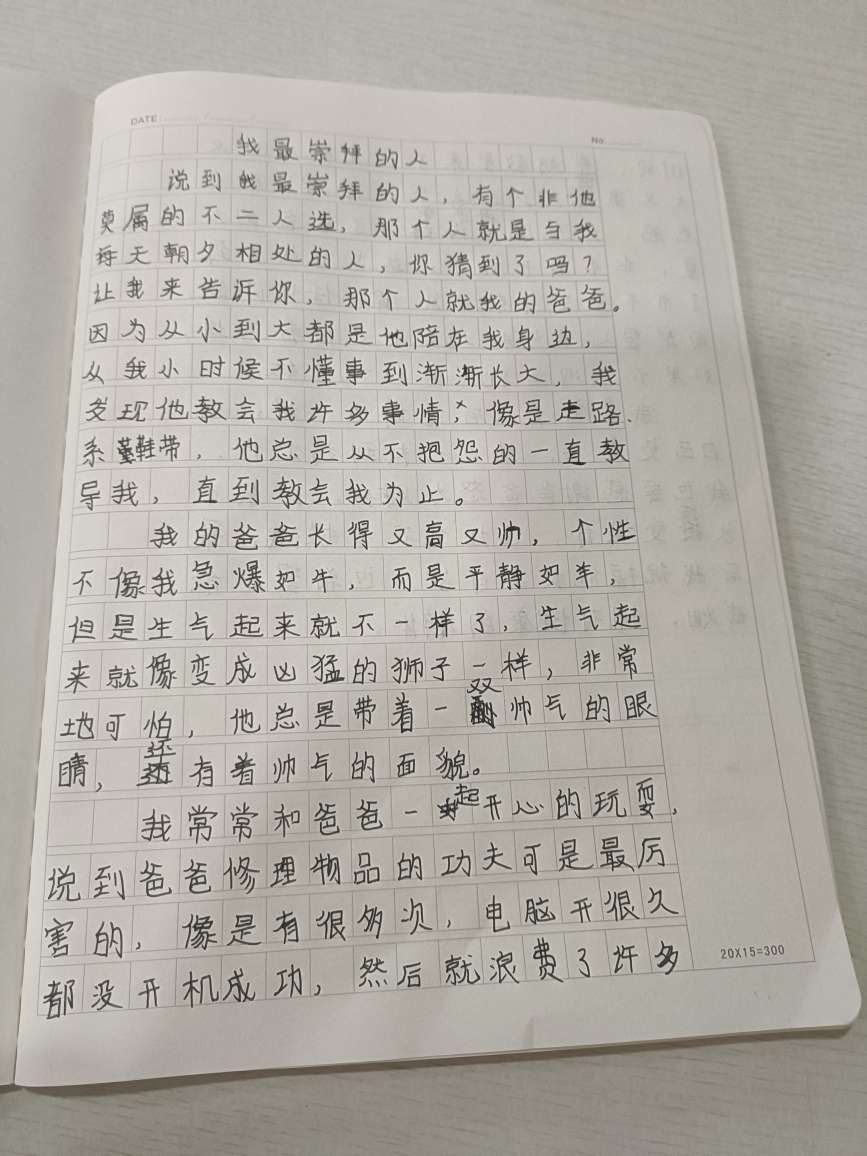 DATE
No
我最崇拜的人
说到我最崇拜的人，有个非他
莫属的不二人选，那个人就是与我
每天朝夕相处的人，你猜到了吗？
让我来告诉你，那个人就我的爸爸。
因为从小到大都是他陪在我身边，
从我小时候不懂事到渐渐长大，我
发现他教会我许多事情，像是走路、
系鞋带，他总是从不把怨的一直教
导我，直到教会我为止。
我的爸爸长得又高又帅，个性
不像我急爆如牛，而是平静如羊，
但是生气起来就不一样了，生气起
来就像变成凶猛的狮子一样，非常
地可怕，他总是带着一双帅气的眼
睛，还有着帅气的面貌。
我常常和爸爸一起开心的玩耍，
说到爸爸修理物品的功夫可是最厉
害的，像是有很多次，电脑开很久
都没开机成功，然后就浪费了许多
20X15=300